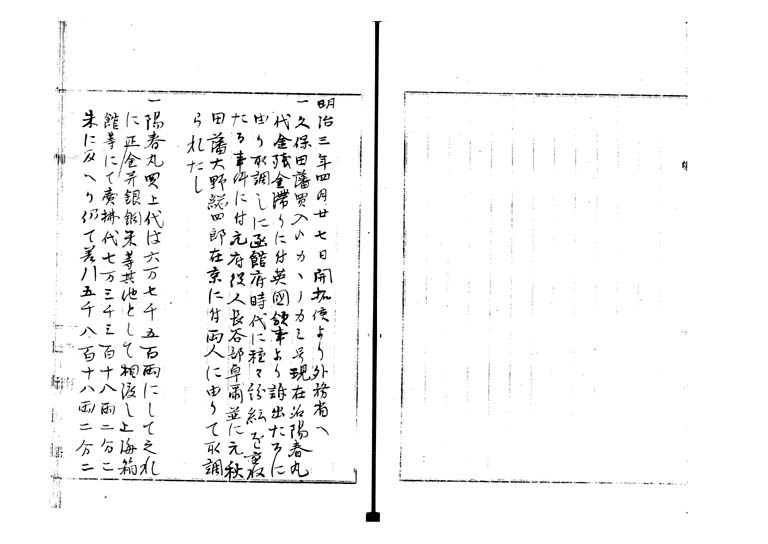 明治三年四月廿七日開拓使より外務省へ
一久保田藩買入ﾚカヽノカミ号現在沿陽春丸
代金残金滞りに付英國領事より訴出たるに
由り取調しに函館府時代に種々紛紜を重ね
たる事件に付元府役人長谷部卓爾並に元秋
田藩大野総四郎在京に付両人に由りて取調
られたし
一陽春丸買上代は六万七千五百両にして之れ
に正金并銀銅米等其他として相渡し上海箱
館等にて廣拂代七万三千三百十八両二分二
朱に及へり仍て差引五千八百十八両二分二